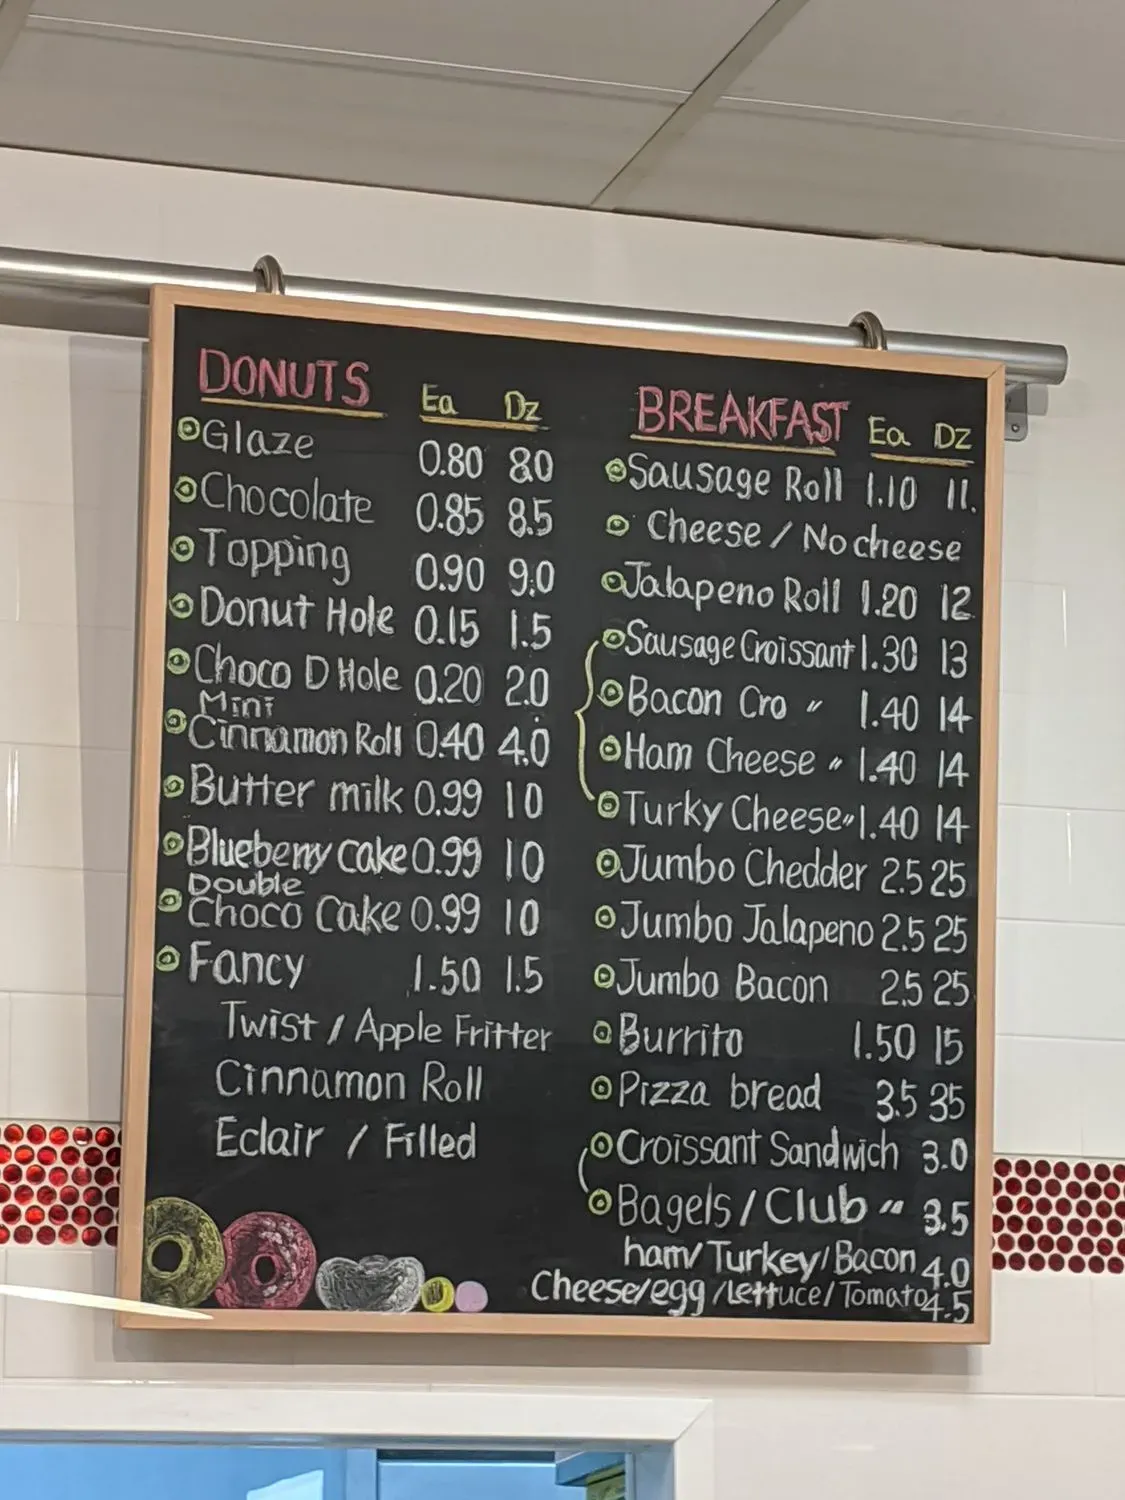 DONUTS Ea Dz
Glaze 0.80 8.0
Chocolate 0.85 8.5
Topping 0.90 9.0
Donut Hole 0.15 1.5
Choco D Hole 0.20 2.0
Mini
Cinnamon Roll 0.40 4.0
Butter milk 0.99 10
Blueberry cake 0.99 10
Double
Choco Cake 0.99 10
Fancy 1.50 1.5
Twist / Apple Fritter
Cinnamon Roll
Eclair / Filled
BREAKFAST Ea Dz
Sausage Roll 1.10 11.
Cheese / No cheese
Jalapeno Roll 1.20 12
Sausage Croissant 1.30 13
Bacon Cro " 1.40 14
Ham Cheese " 1.40 14
Turky Cheese " 1.40 14
Jumbo Chedder 2.5 25
Jumbo Jalapeno 2.5 25
Jumbo Bacon 2.5 25
Burrito 1.50 15
Pizza bread 3.5 35
Croissant Sandwich 3.0
Bagels / Club " 3.5
ham/Turkey/Bacon 4.0
Cheese/egg/Lettuce/Tomato 4.5